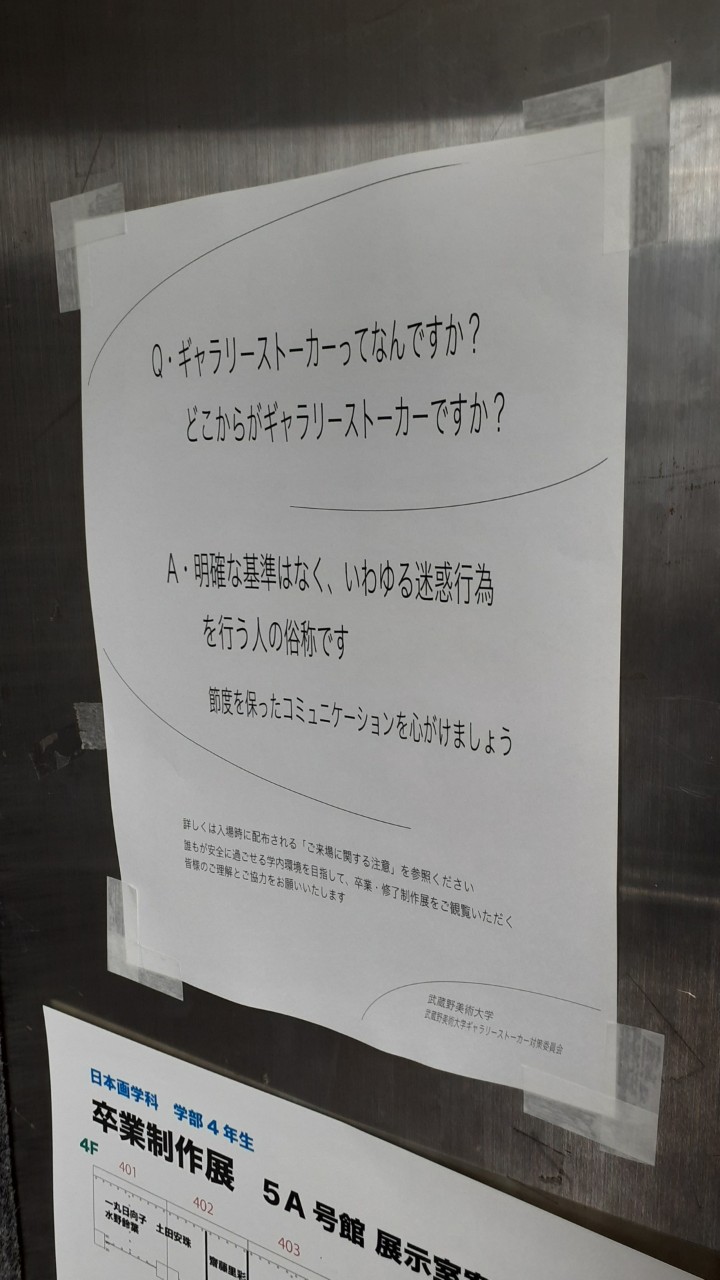 Q・ギャラリーストーカーってなんですか？
どこからがギャラリーストーカーですか？
A・明確な基準はなく、いわゆる迷惑行為
を行う人の俗称です
節度を保ったコミュニケーションを心がけましょう
詳しくは入場時に配布される「ご来場に関する注意」を参照ください
誰もが安全に過ごせる学内環境を目指して、卒業・修了制作展をご観覧いただく
皆様のご理解とご協力をお願いいたします
武蔵野美術大学
武蔵野美術大学ギャラリーストーカー対策委員会
日本画学科 学部4年生
卒業制作展 5A号館 展示室案
4F
401
402
403
一丸日向子
水野鈴葉
土田安珠
齋藤里彩